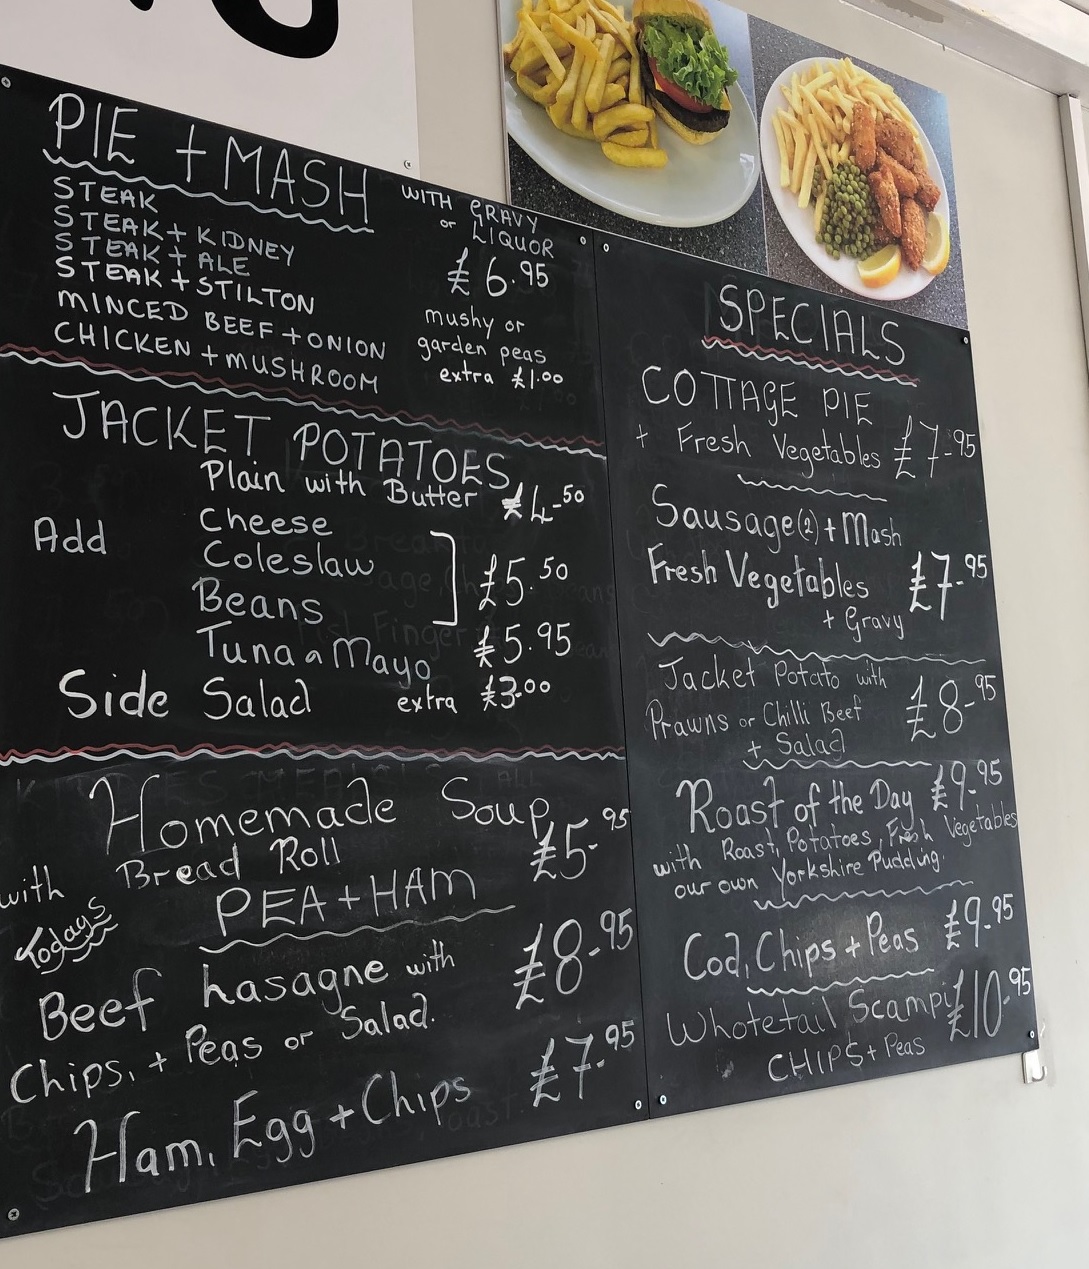 PIE + MASH
WITH GRAVY
or LIQUOR
£6.95
STEAK
STEAK + KIDNEY
STEAK + ALE
STEAK + STILTON
MINCED BEEF + ONION
CHICKEN + MUSHROOM
mushy or
garden peas
extra £1.00
JACKET POTATOES
Plain with Butter £4-50
Add Cheese
Coleslaw £5.50
Beans
Tuna n Mayo £5.95
Side Salad extra £3.00
Homemade Soup
with Bread Roll £5-95
Todays PEA + HAM
Beef Lasagne with £8-95
Chips, + Peas or Salad.
Ham, Egg + Chips £7-95
SPECIALS
COTTAGE PIE
+ Fresh Vegetables £7-95
Sausage(2) + Mash
Fresh Vegetables £7-95
+ Gravy
Jacket Potato with
Prawns or Chilli Beef £8-95
+ Salad
Roast of the Day £9-95
with Roast, Potatoes, Fresh Vegetables
our own Yorkshire Pudding.
Cod, Chips + Peas £9-95
Whotetail Scampi £10-95
CHIPS + Peas